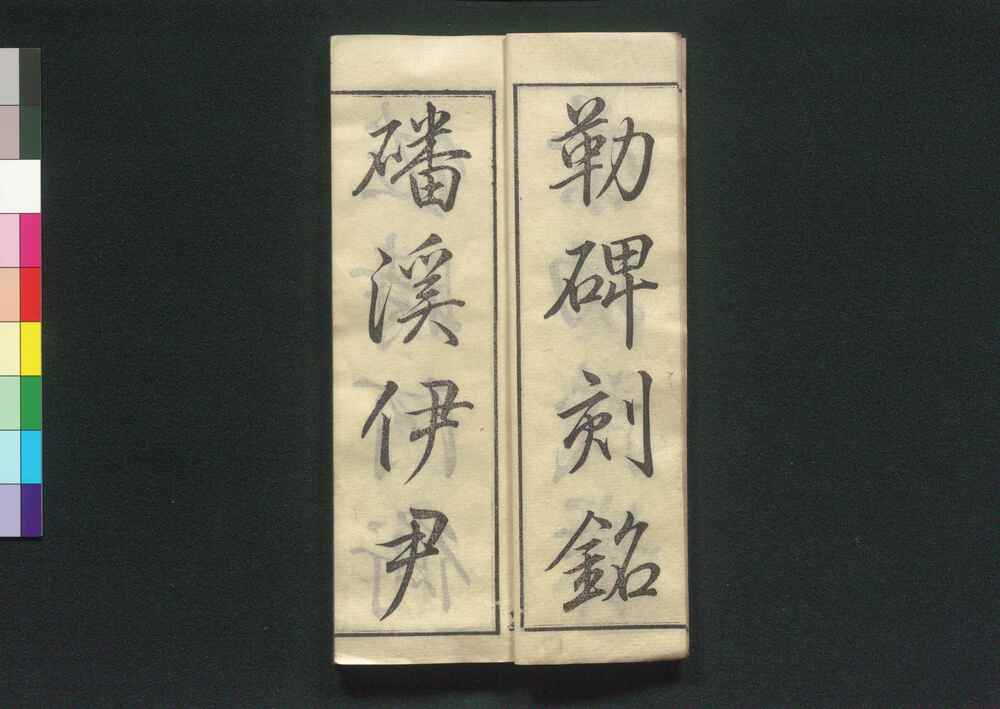 勒碑刻銘
磻溪伊尹